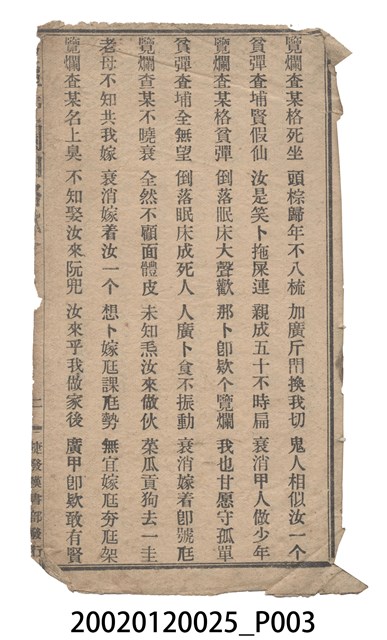 覽爛查某格死坐 頭棕歸年不八梳 加廣斤鬥換我切 鬼人相似汝一个
貧彈查埔賢假仙 汝是笑卜拖屎連 親成五十不時扁 衰消甲人做少年
覽爛查某格貧彈 倒落眠床大聲歡 那卜卽欵个覽爛 我也甘愿守孤單
貧彈查埔全無望 倒落眠床成死人 人廣卜食不振動 衰消嫁着卽號尫
覽爛查某不曉衰 全然不顧面體皮 未知炁汝來做伙 菜瓜貢狗去一圭
老母不知共我嫁 衰消嫁着汝一个 想卜嫁尫課尫勢 無宜嫁尫夯尫架
覽爛查某名上臭 不知娶汝來阮兜 汝來乎我做家後 廣甲卽欵敢有賢
二 捷發漢書部發行
20020120025_P003